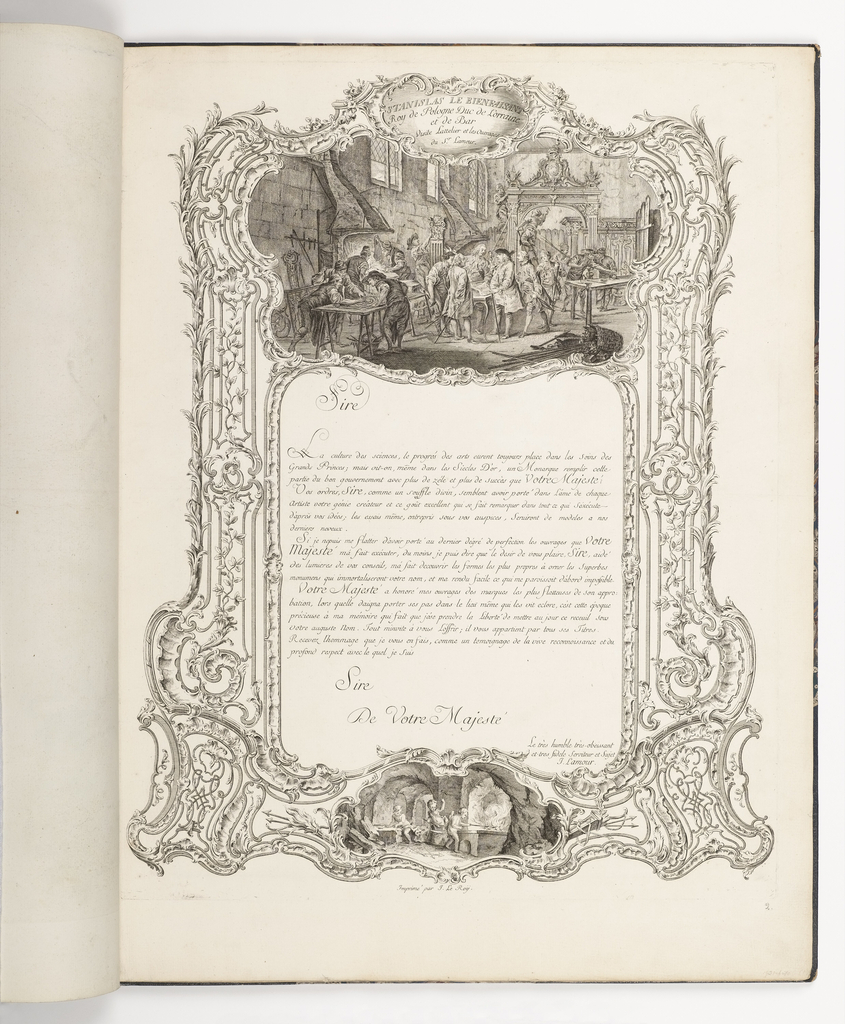 STANISLAS LE BIENFAISANT
Roy de Pologne Duc de Lorraine
et de Bar
Visite L'attelier et les Ouvrages
du Sr. Lamour.
Sire
La culture des sciences, le progrés des arts eurent toujours place dans les soins des
Grands Princes; mais vit-on, même dans les Siecles D'or, un Monarque remplir cette
partie du bon gouvernement avec plus de zele et plus de succés que Votre Majesté?
Vos ordres, Sire, comme un souffle divin, semblent avoir porté dans l'ame de chaque
Artiste votre genie créateur et ce goût excellent qui se fait remarquer dans tout ce qui s'exécute
d'aprés vos idées; les essais même, entrepris sous vos auspices, serviront de modeles a nos
derniers neveux.
Si je nepuis me flatter d'avoir porté au dernier dégré de perfection les ouvrages que Votre
Majesté m'a fait exécuter, du moins je puis dire que le desir de vous plaire, Sire, aidé
des lumieres de vos conseils, m'a fait decouvrir les formes les plus propres à orner les Superbes
monumens qui immortaliseront votre nom, et m'a rendu facile ce qui me paroissoit d'abord impossible.
Votre Majesté a honoré mes ouvrages des marques les plus flatteuses de son appro-
bation, lors quelle daigna porter ses pas dans le lieu même qui les vit eclore, c'est cette époque
précieuse à ma mémoire qui fait que j'ose prendre la liberté de mettre au jour ce recueil sous
votre auguste Nom. Tout m'invite à vous L'offrir; il vous appartient par tous ses Titres
Recevez l'hommage que je vous en fais, comme un temoignage de la vive reconnoissance et du
profond respect avec le quel je Suis
Sire
De Votre Majesté
Le très humble très-obeissant
et très fidele Serviteur et Sujet
J. Lamour.
Imprimé par J. Le Roy.
2